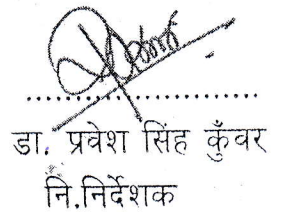 डा. प्रवेश सिंह कुँवर
नि.निर्देशक